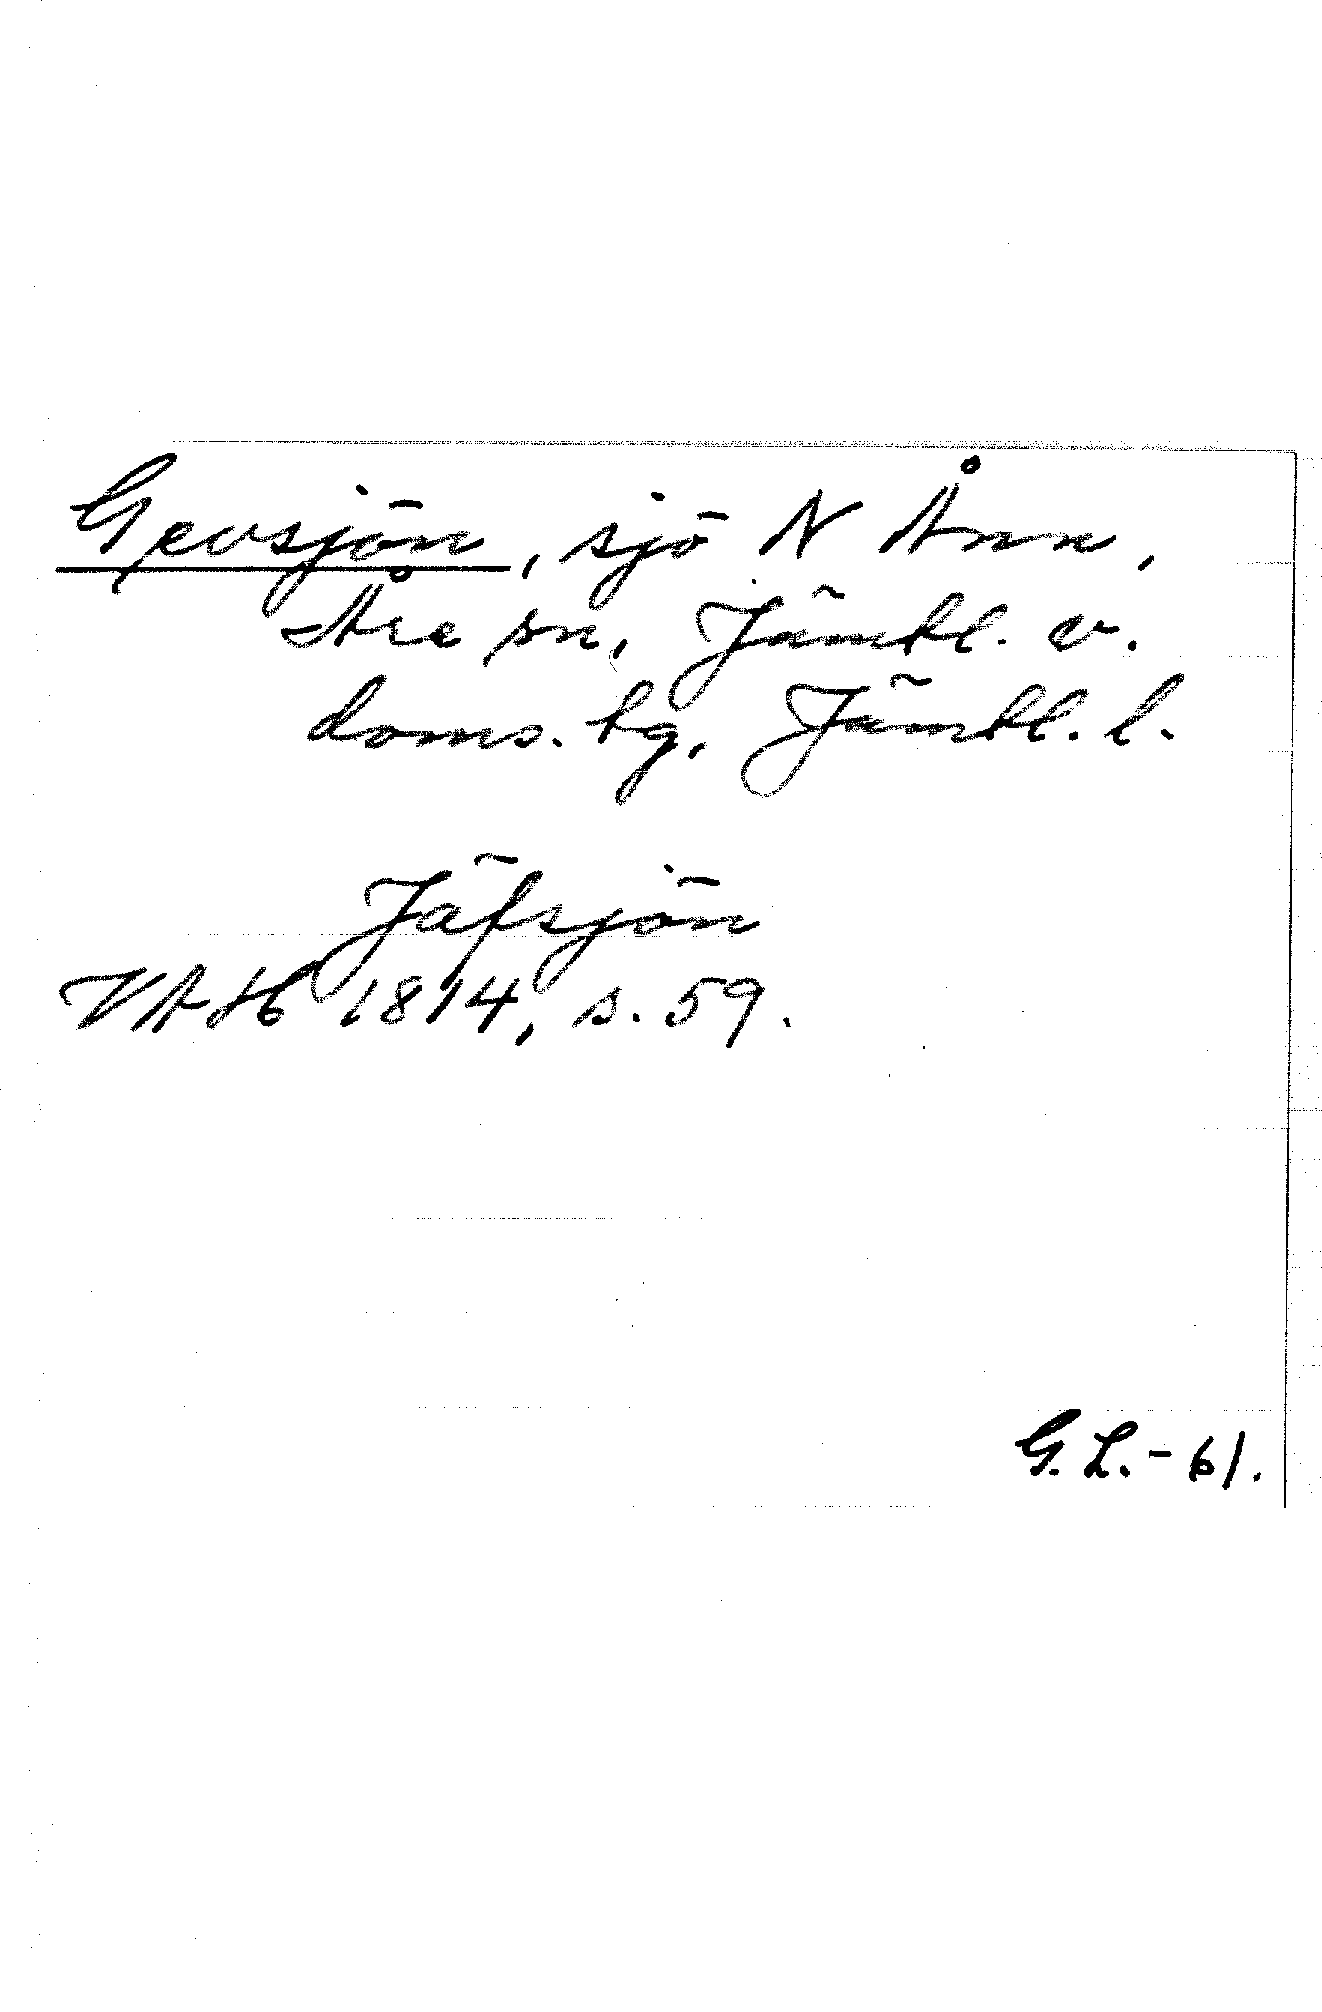 Gevsjön, sjö N Ånn,
Åre sn, Jämtl. v.
doms. tg, Jämtl. l.
Jäfsjön
VAH 1814, s. 59.
G. L. - 61.